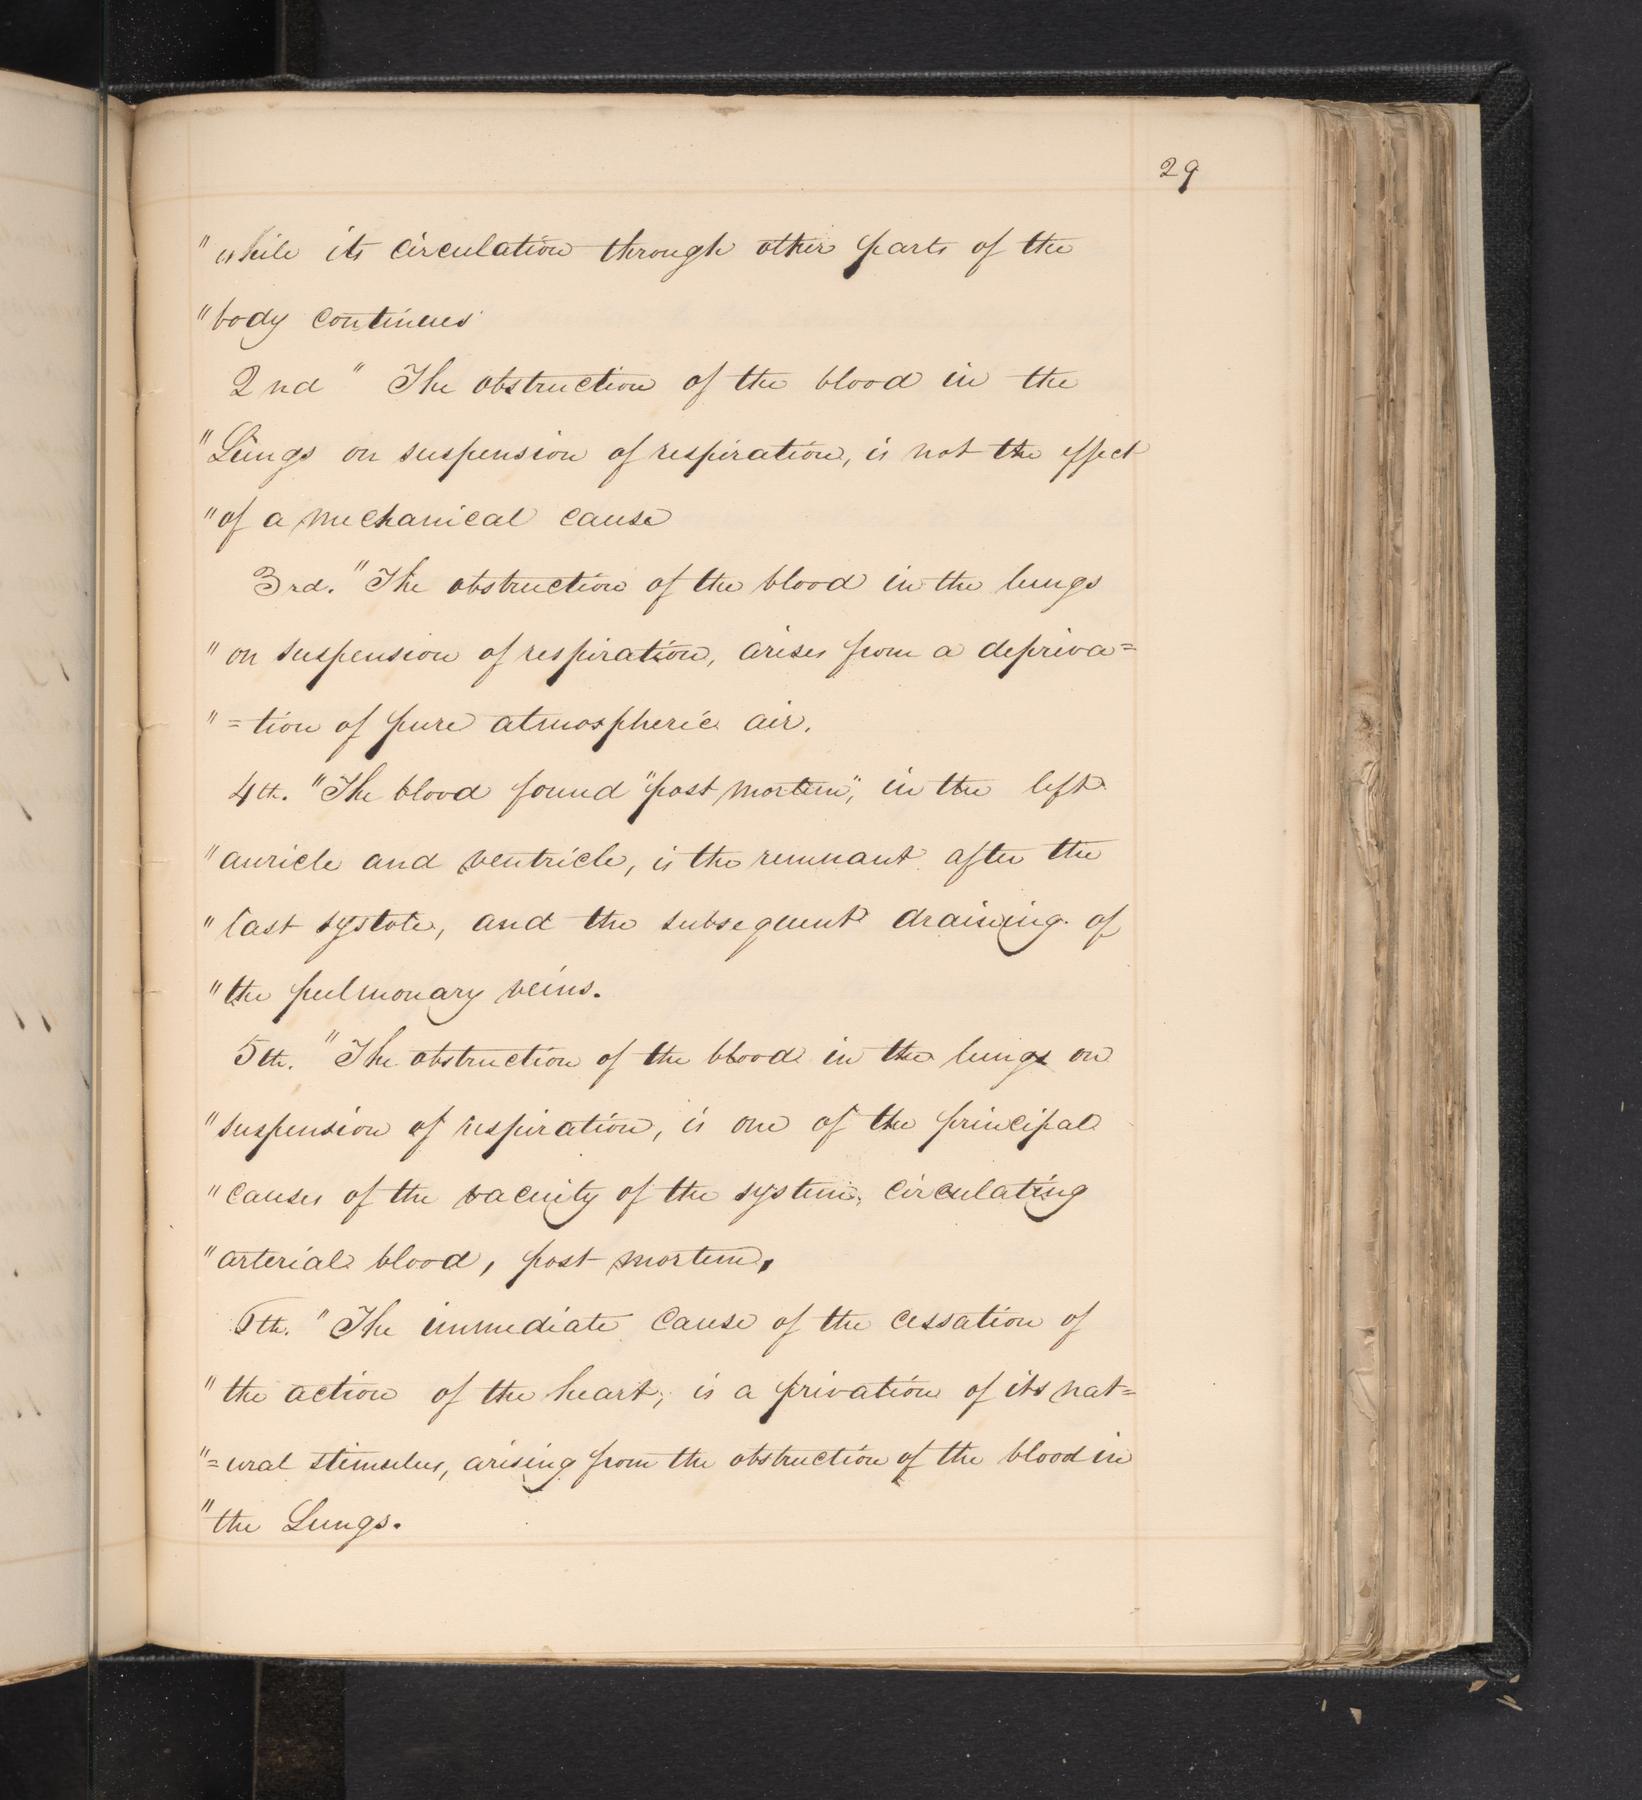 29
" while its circulation through other parts of the
" body continues
2nd " The obstruction of the blood in the
" Lungs on suspension of respiration, is not the effect
" of a mechanical cause
3rd. " The obstruction of the blood in the lungs
" on suspension of respiration, arises from a depriva=
" =tion of pure atmospheric air.
4th. " The blood found "post mortem", in the left
" auricle and ventricle, is the remnant after the
" last systole, and the subsequent draining of
" the pulmonary veins.
5th. " The obstruction of the blood in the lungs on
" suspension of respiration, is one of the principal
" causes of the vacuity of the system, circulating
" arterial blood, post mortem,
6th. " The immediate cause of the cessation of
" the action of the heart, is a privation of its nat=
" =ural stimulus, arising from the obstruction of the blood in
" the Lungs.